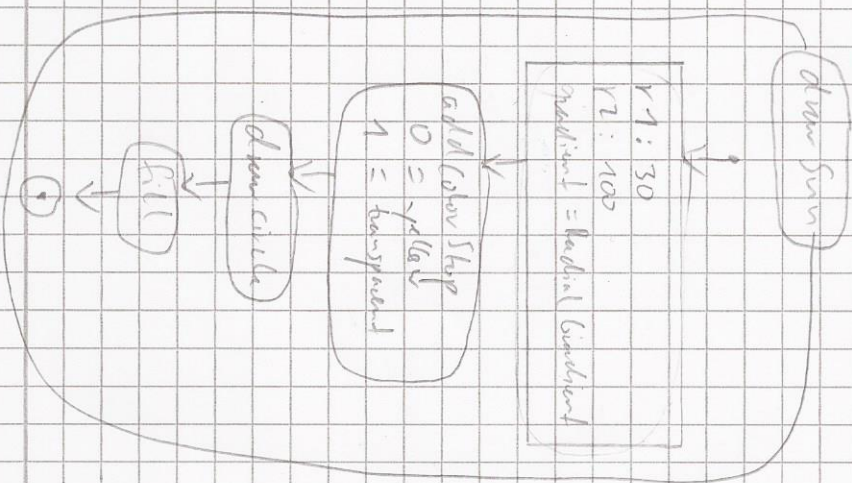 draw Sun
r1: 30
r2: 100
gradient = RadialGradient
add Color Stop
0 = yellow
1 = transparent
draw circle
fill